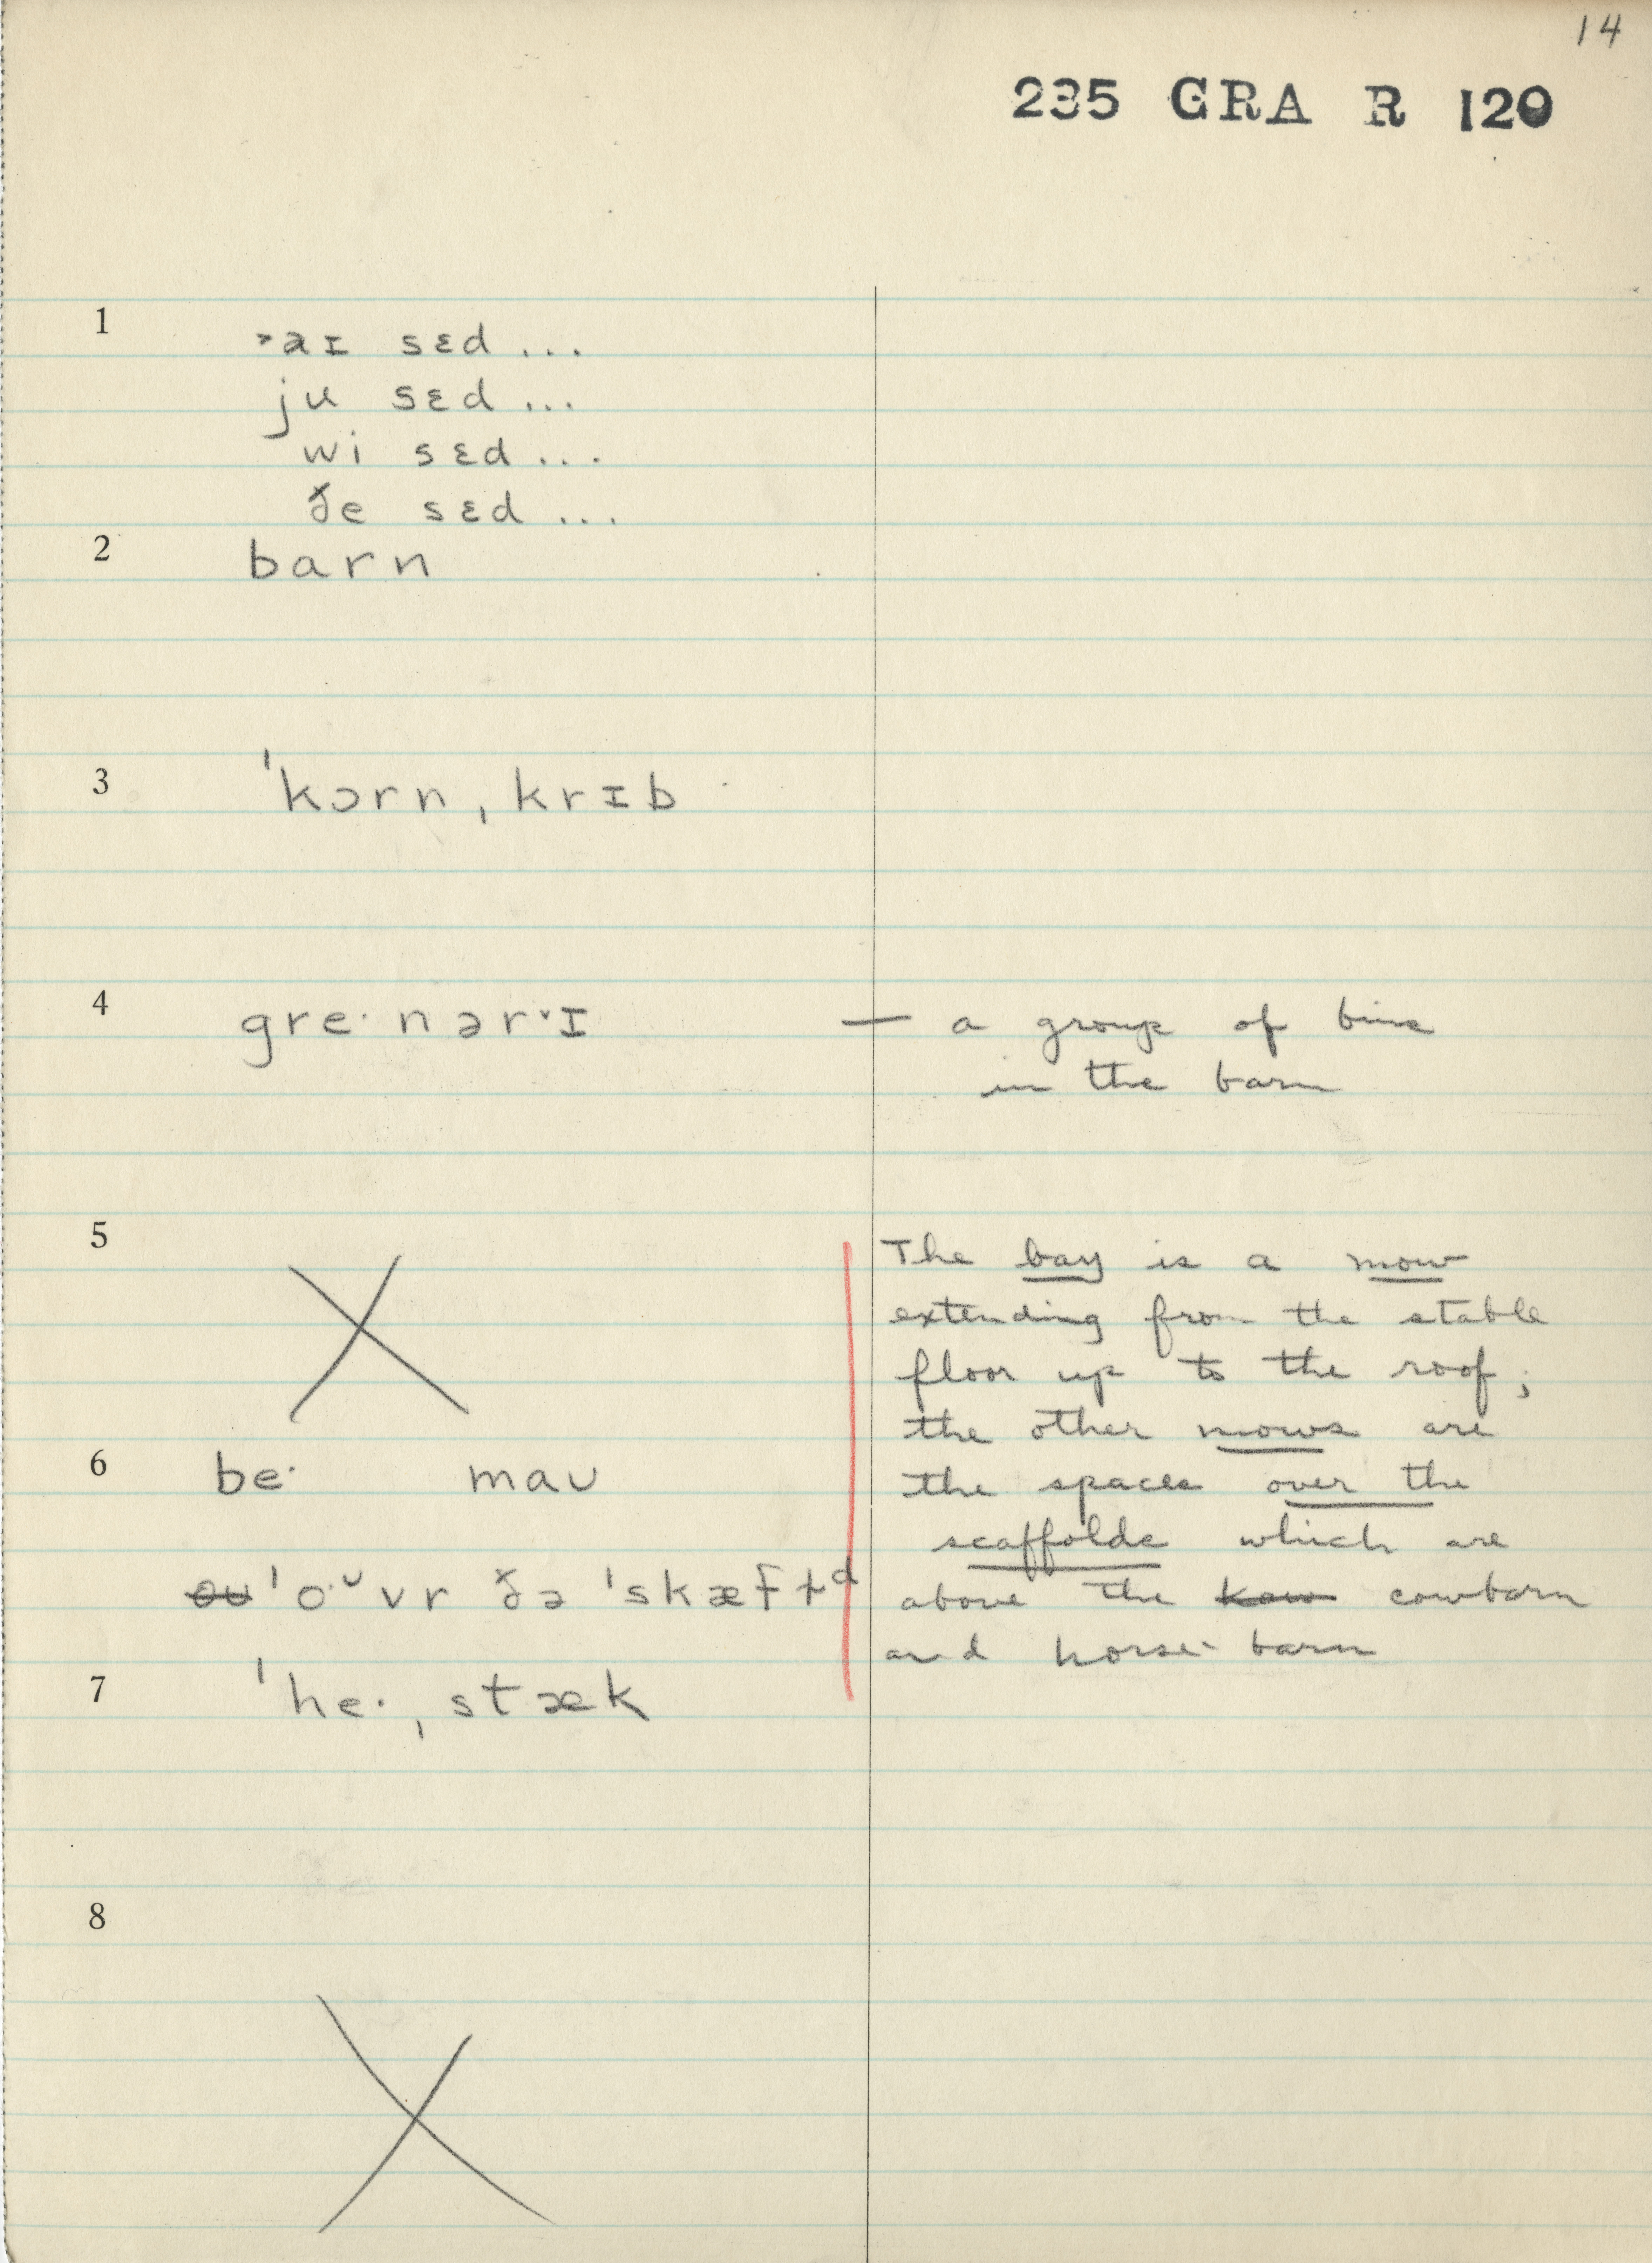 14
235 GRA R 120
1
˃aɪ sɛd ...
ju sɛd ...
wi sɛd ...
ðe sɛd ...
2
barn
3
ˈkɔrn ˌkrɪb
4
gre· nərˑɪ — a group of bins
in the barn
5
The bay is a mow
extending from the stable
floor up to the roof;
the other mows are
6
be· maʊ
the spaces over the
scaffolds which are
ˈo·ᵕvr ðə ˈskæft
above the cowbarn
and horse-barn
7
ˈhe· ˌstæk
8